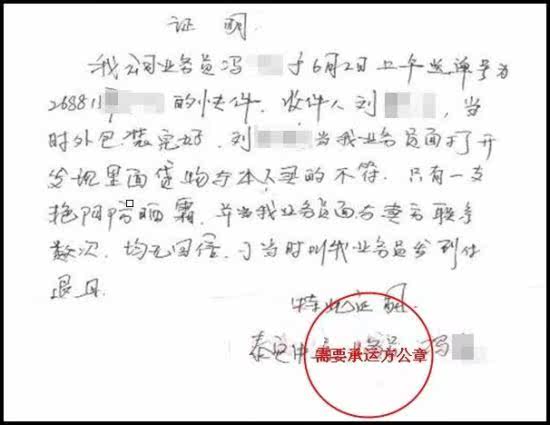 证明
我公司业务员冯 于6月2日上午送单号为
268811 的快件,收件人刘 ,当
时外包装完好,刘 当我业务员面打开
发现里面货物与本人买的不符.只有一支
艳阳防晒霜,并当我业务员面与卖方联系
数次,均无回信,于当时叫我业务员发到付
退回.
特此证明.
业务员 冯
需要承运方公章